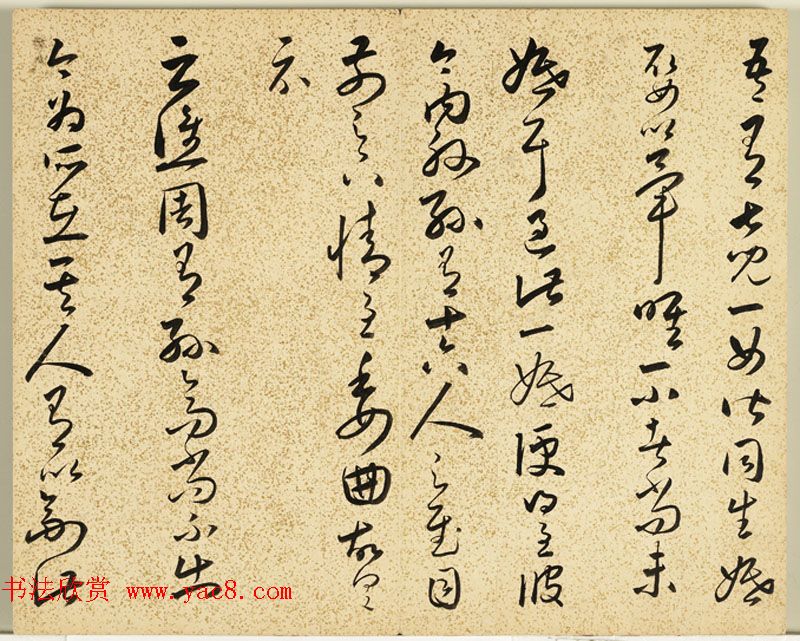 吾有七兒一女皆同生婚
娶以畢唯一小者尚未
婚耳過此一婚便得至彼
今内外孫有十六人足慰目
前足下情至委曲故具
示
云譙周有孫高尚不出
今為所在其人有以副此
书法欣赏 www.yac8.com